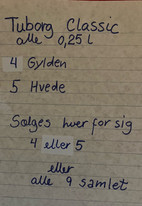 Tuborg Classic
alle 0,25 L
4 Gylden
5 Hvede
Sælges hver for sig
4 eller 5
eller
alle 9 samlet